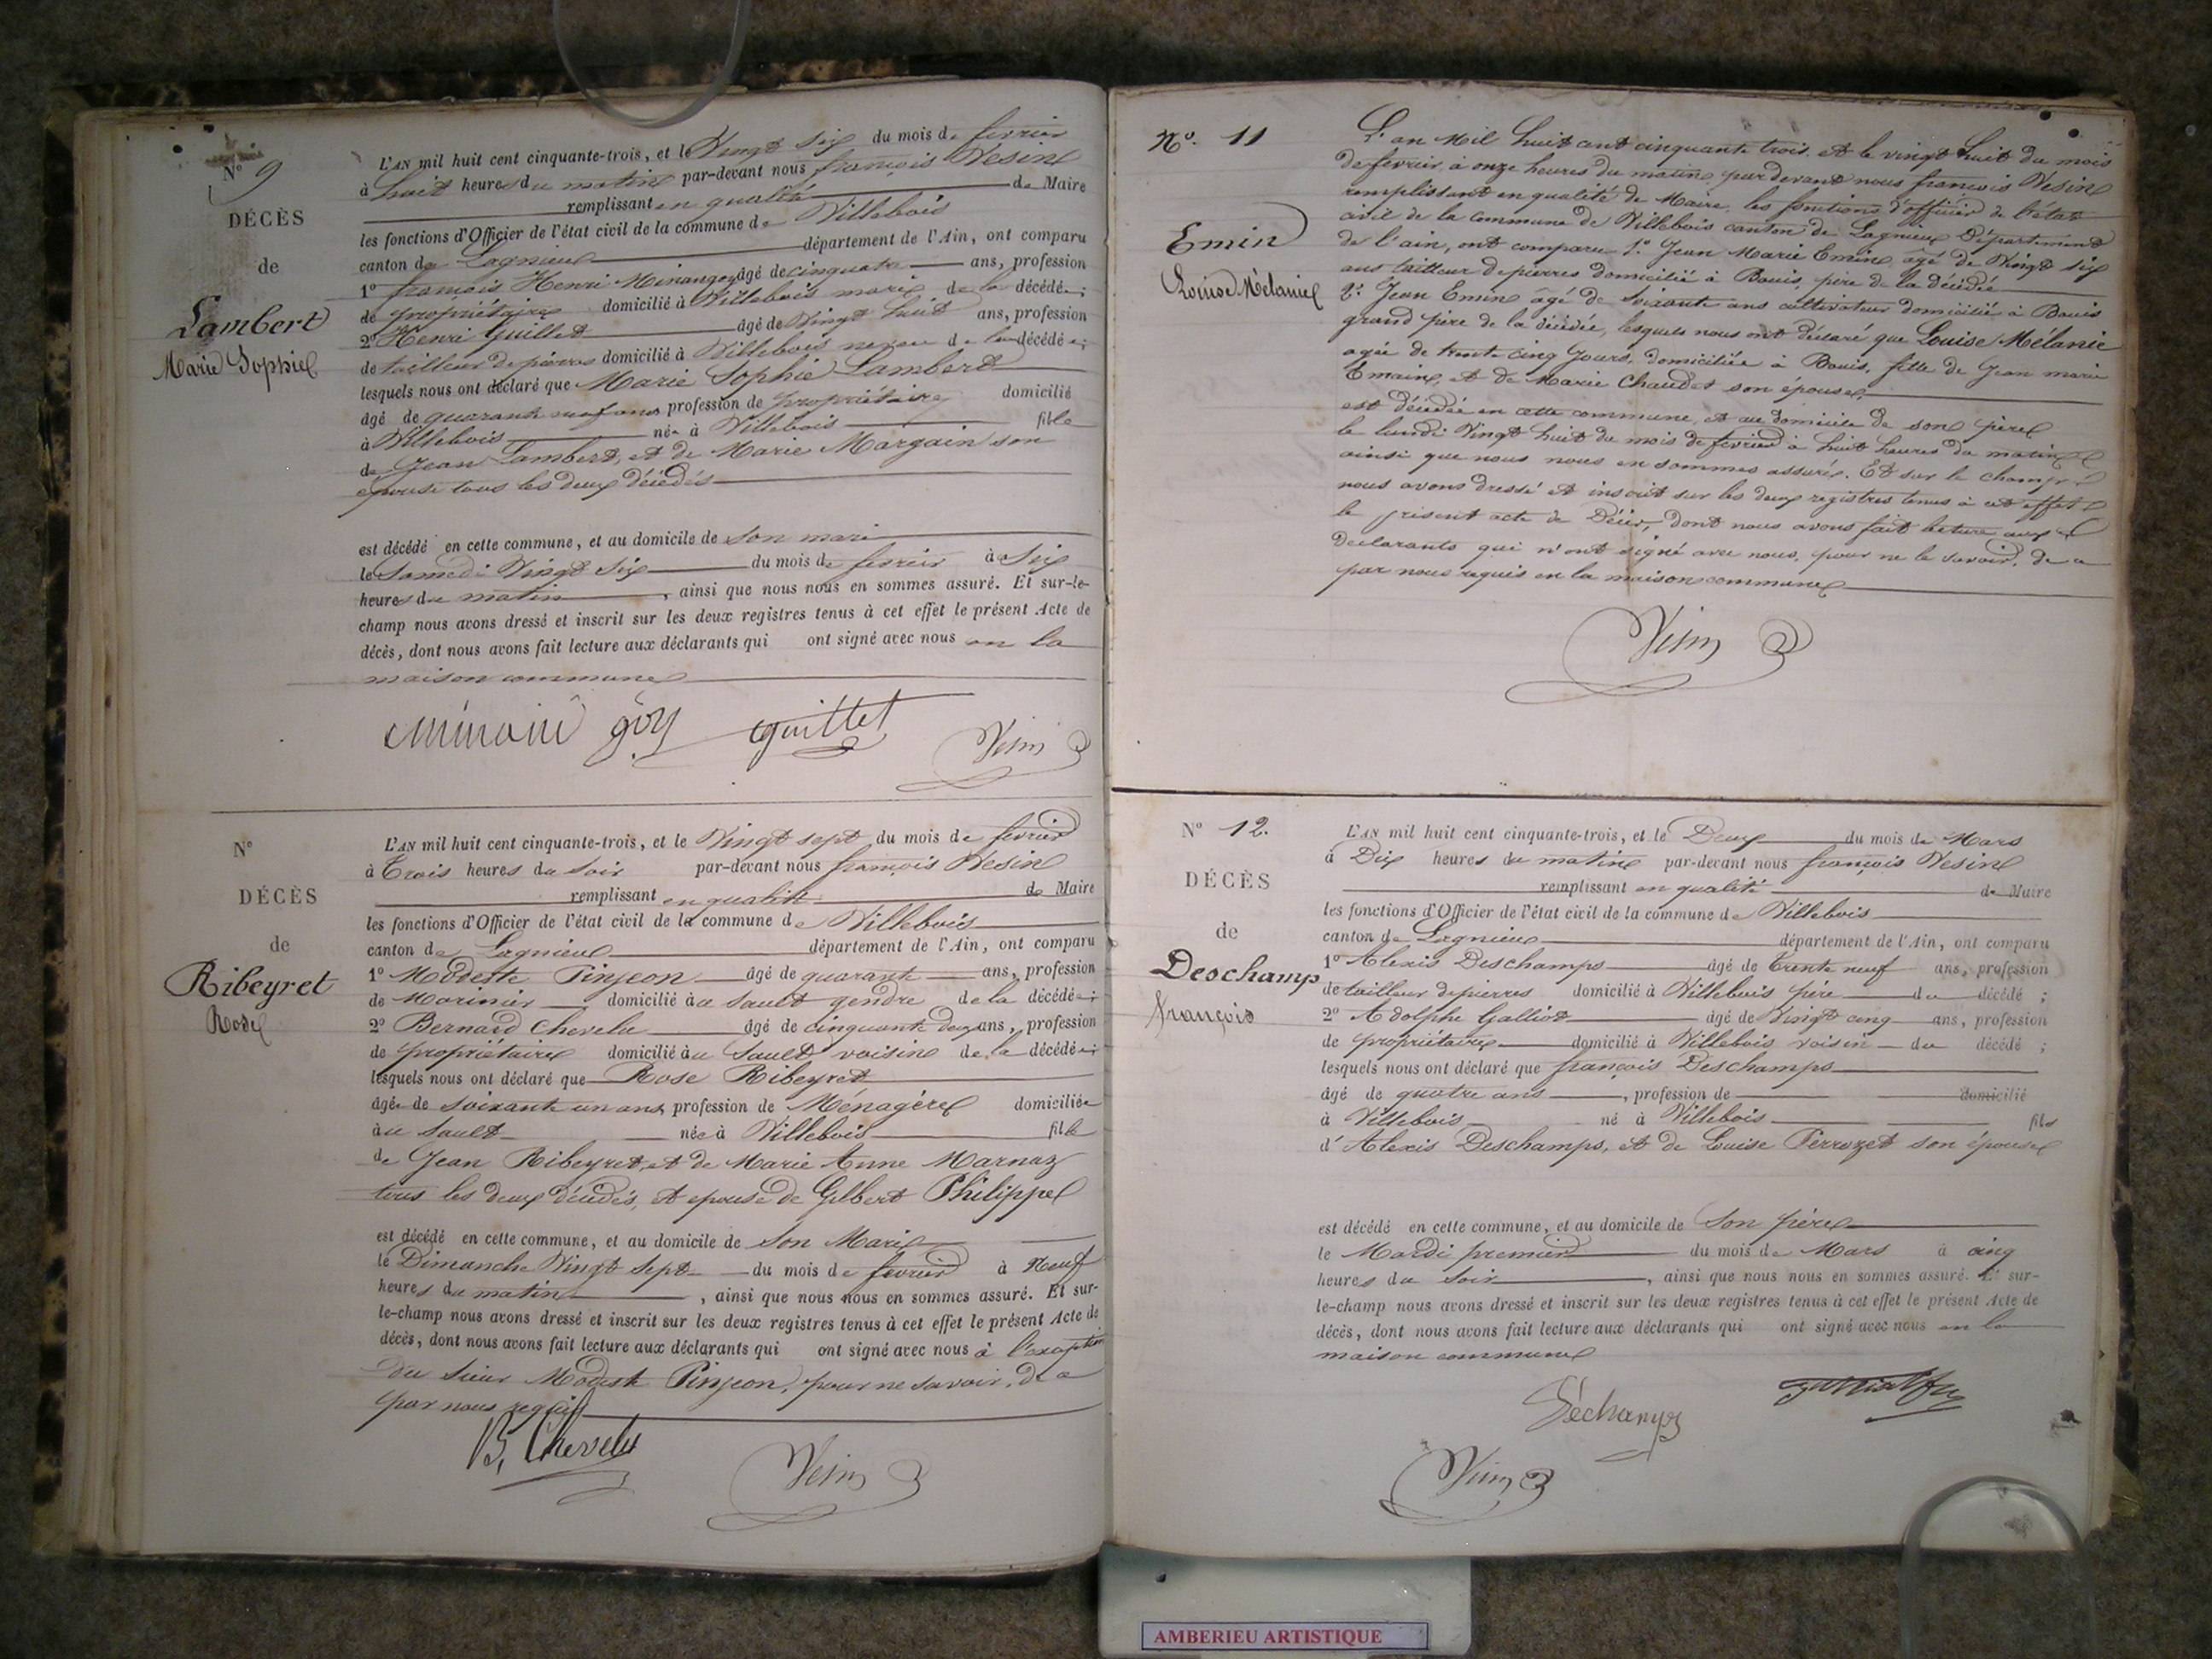 N° 9
DÉCÈS
de
Lambert
Marie Sophie
L'AN mil huit cent cinquante-trois, et le Vingt six du mois de fevrier
à huit heures du matin par-devant nous françois Vesin
remplissant en qualité de Maire
les fonctions d'Officier de l'état civil de la commune de Villebois
canton de Lagnieu département de l'Ain, ont comparu
1° françois Henri âgé de cinquante ans, profession
de propriétaire domicilié à Villebois mari de la décédée;
2° Henri Guillet âgé de Vingt huit ans, profession
de tailleur de pierres domicilié à Villebois neveu de la décédée;
lesquels nous ont déclaré que Marie Sophie Lambert
âgé de quarante neuf ans profession de propriétaire domicilié
à Villebois née à Villebois fille
de Jean Lambert, et de Marie Margain son
épouse tous les deux décédés
est décédé en cette commune, et au domicile de son mari
le Samedi Vingt Six du mois de fevrier à Six
heures du matin, ainsi que nous nous en sommes assuré. Et sur-le-
champ nous avons dressé et inscrit sur les deux registres tenus à cet effet le présent Acte de
décès, dont nous avons fait lecture aux déclarants qui ont signé avec nous en la
maison commune
guillet Vesin
N°
DÉCÈS
de
Ribeyret
Rose
L'AN mil huit cent cinquante-trois, et le Vingt sept du mois de fevrier
à Trois heures du Soir par-devant nous françois Vesin
remplissant en qualité de Maire
les fonctions d'Officier de l'état civil de la commune de Villebois
canton de Lagnieu département de l'Ain, ont comparu
1° Modeste Pinjeon âgé de quarante ans, profession
de Marinier domicilié au Sault gendre de la décédée;
2° Bernard Chevelu âgé de cinquante deux ans, profession
de propriétaire domicilié au Sault voisin de la décédée;
lesquels nous ont déclaré que Rose Ribeyret
âgée de soixante un ans profession de Ménagère domiciliée
au Sault née à Villebois fille
de Jean Ribeyret, et de Marie Anne Marnaz
tous les deux décédés, et epouse de Gilbert Philippe
est décédé en cette commune, et au domicile de son Mari
le Dimanche Vingt Sept du mois de fevrier à Neuf
heures du matin, ainsi que nous nous en sommes assuré. Et sur-
le-champ nous avons dressé et inscrit sur les deux registres tenus à cet effet le présent Acte de
décès, dont nous avons fait lecture aux déclarants qui ont signé avec nous à l'exception
du sieur Modeste Pinjeon, pour ne savoir, de ce
par nous requis
B, Chevelu Vesin
N°. 11
Emin
Louise Mélanie
L'an Mil huit cent cinquante trois et le vingt huit du mois
de fevrier à onze heures du matin par devant nous françois Vesin
remplissant en qualité de Maire, les fonctions d'officier de l'état
civil de la commune de Villebois canton de Lagnieu Département
de l'ain, ont comparu 1° Jean Marie Emin agé de Vingt six
ans tailleur de pierres domicilié à Bouis, père de la décédée
2° Jean Emin âgé de soixante ans cultivateur domicilié à Bouis
grand père de la décédée, lesquels nous ont déclaré que Louise Mélanie
agée de trente cinq Jours, domiciliée à Bouis, fille de Jean marie
Emain, et de Marie Chaudet son épouse,
est décédée en cette commune, et au domicile de son père
le lundi Vingt huit du mois de fevrier à huit heures du matin
ainsi que nous nous en sommes assuré. Et sur le champ
nous avons dressé et inscrit sur les deux registres tenus à cet effet
le présent acte de Décès, dont nous avons fait lecture aux
déclarants qui n'ont signé avec nous, pour ne le savoir, de ce
par nous requis en la maison commune
Vesin
N° 12.
DÉCÈS
de
Deschamp
François
L'AN mil huit cent cinquante-trois, et le Deux du mois de Mars
à Dix heures du matin par-devant nous françois Vesin
remplissant en qualité de Maire
les fonctions d'Officier de l'état civil de la commune de Villebois
canton de Lagnieu département de l'Ain, ont comparu
1° Alexis Deschamps âgé de Trente neuf ans, profession
de tailleur de pierres domicilié à Villebois père du décédé;
2° Adolphe Galliot âgé de Vingt cinq ans, profession
de propriétaire domicilié à Villebois voisin du décédé;
lesquels nous ont déclaré que françois Deschamps
âgé de quatre ans, profession de domicilié
à Villebois né à Villebois fils
d'Alexis Deschamps, et de Louise Perrozet son épouse
est décédé en cette commune, et au domicile de Son père
le Mardi premier du mois de Mars à cinq
heures du Soir, ainsi que nous nous en sommes assuré. Et sur-
le-champ nous avons dressé et inscrit sur les deux registres tenus à cet effet le présent Acte de
décès, dont nous avons fait lecture aux déclarants qui ont signé avec nous en la
maison commune
Vesin
AMBERIEU ARTISTIQUE